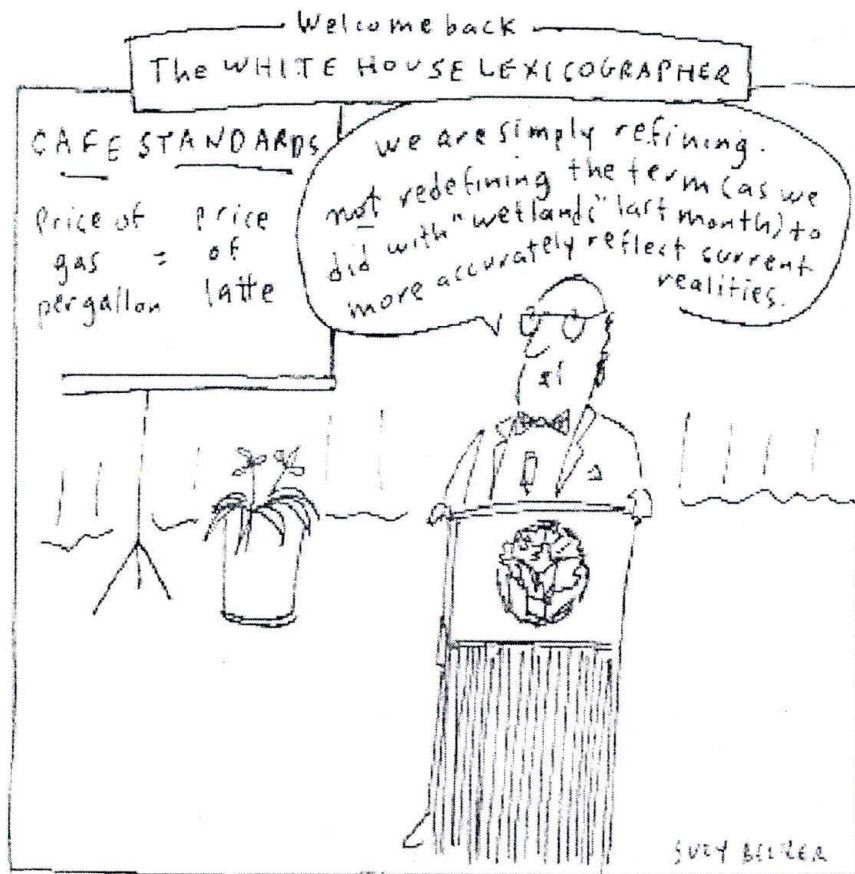 Welcome back
The WHITE HOUSE LEXICOGRAPHER
CAFE STANDARDS
price of gas per gallon = price of latte
we are simply refining.
not redefining the term (as we
did with "wetlands" last month) to
more accurately reflect current
realities.
SUZY BECKER